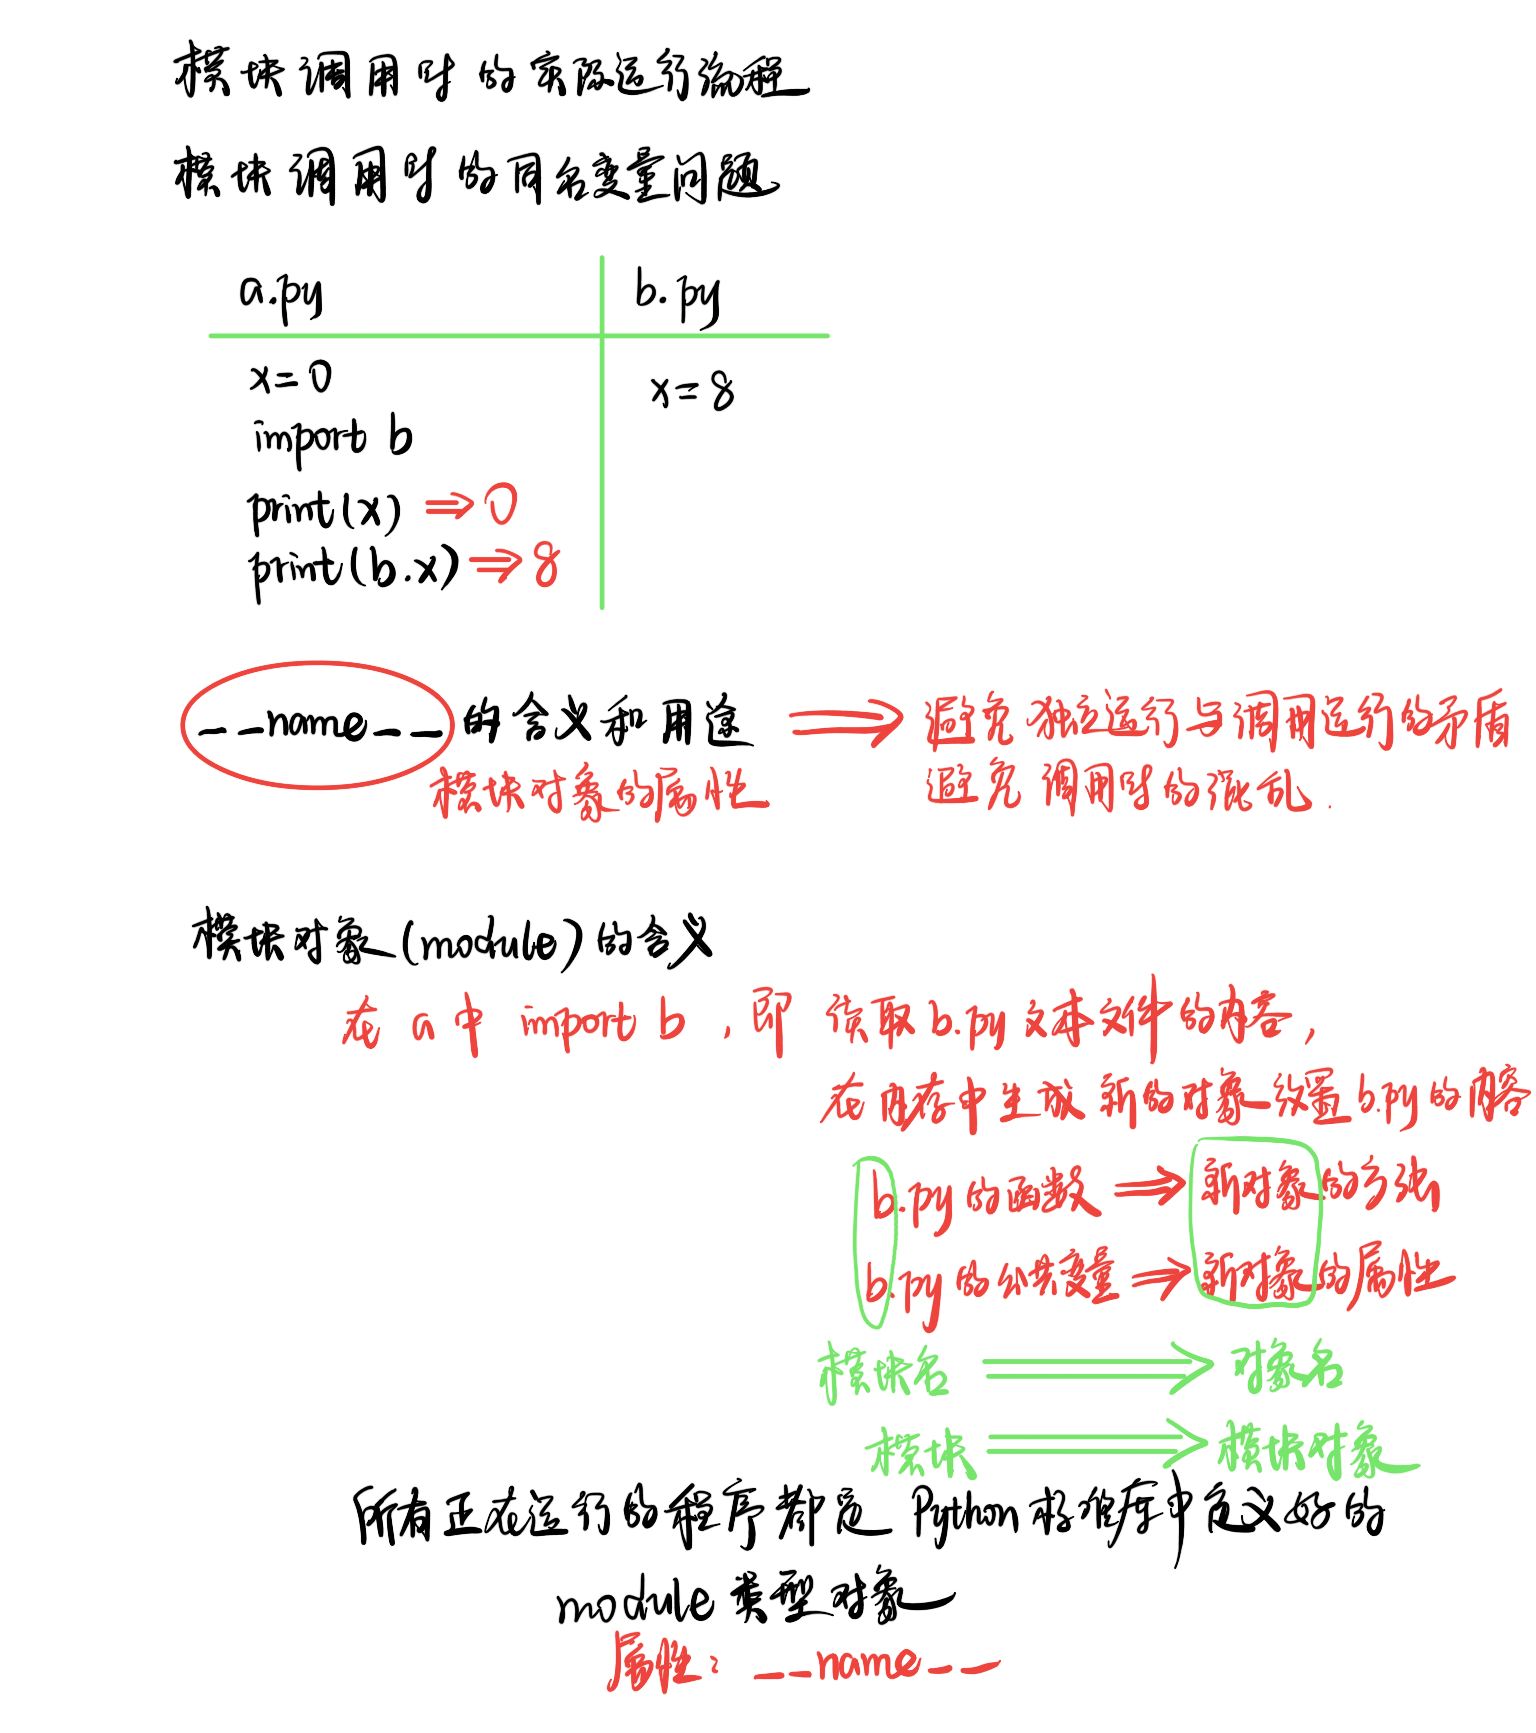 模块调用时的实际运行流程
模块调用时的同名变量问题
a.py
b.py
x=0
x=8
import b
print(x) ⇒ 0
print(b.x) ⇒ 8
__name__ 的含义和用途 ⇒ 避免独立运行与调用运行的矛盾
模块对象的属性
避免调用时的混乱.
模块对象(module)的含义
在 a 中 import b , 即 读取 b.py 文本文件的内容,
在内存中生成新的对象放置b.py的内容
b.py 的函数 ⇒ 新对象的方法
b.py 的公共变量 ⇒ 新对象的属性
模块名 ⇒ 对象名
模块 ⇒ 模块对象
所有正在运行的程序都是 Python 标准库中定义好的
module 类型对象
属性: __name__